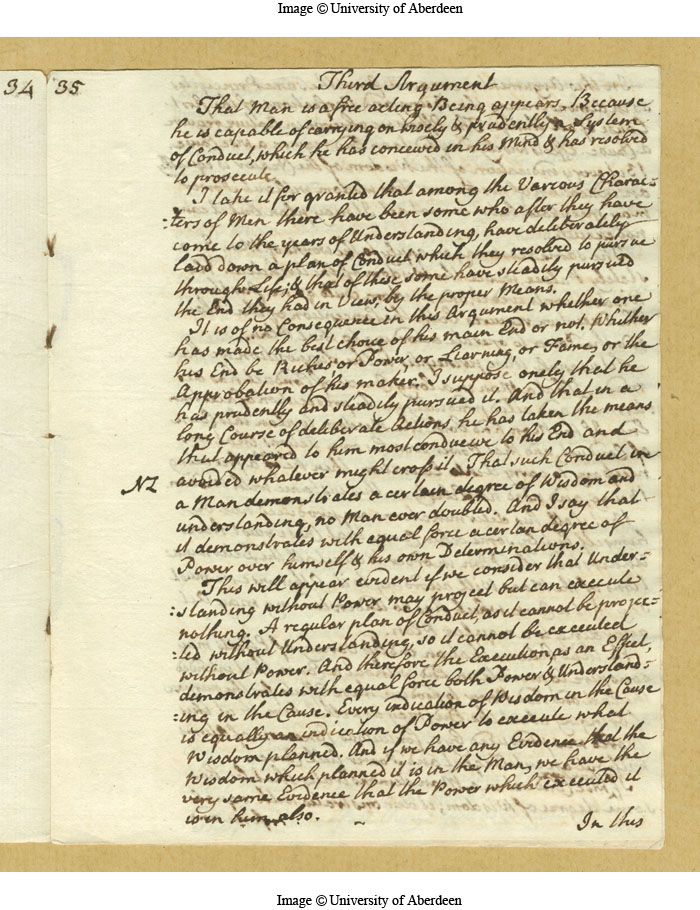 Image © University of Aberdeen
34 35
Third Argument
That Man is a free acting Being appears, Because
he is capable of carrying on wisely & prudently a System
of Conduct, which he has conceived in his Mind & has resolved
to prosecute.
I take it for granted that among the Various Charac-
:ters of Men there have been some who after they have
come to the years of Understanding, have deliberately
laid down a plan of Conduct which they resolved to pursue
through Life; & that of these some have steadily pursued
the End they had in View, by the proper Means.
It is of no Consequence in this Argument whether one
has made the best choice of his main End or not. Whether
his End be Riches or Power, or Learning, or Fame, or the
Approbation of his maker. I suppose onely that he
has prudently and steadily pursued it. And that in a
long Course of deliberate Actions, he has taken the means
that appeared to him most conducive to his End and
avoided whatever might cross it. That such Conduct in
NZ
a Man demonstrates a certain degree of Wisdom and
understanding, no Man ever doubted. And I say that
it demonstrates with equal force a certan degree of
Power over himself & his own Determinations.
This will appear evident if we consider that Under-
:standing without Power may project but can execute
nothing. A regular plan of Conduct, as it cannot be projec-
:ted without Understanding, so it cannot be executed
without Power. And therefore the Execution as an Effect,
demonstrates with equal force both Power & Understand-
:ing in the Cause. Every indication of Wisdom in the Cause
is equally an indication of Power to execute what
Wisdom planned. And if we have any Evidence that the
Wisdom which planned it is in the Man, we have the
very same Evidence that the Power which executed it
is in him also.
In this
Image © University of Aberdeen